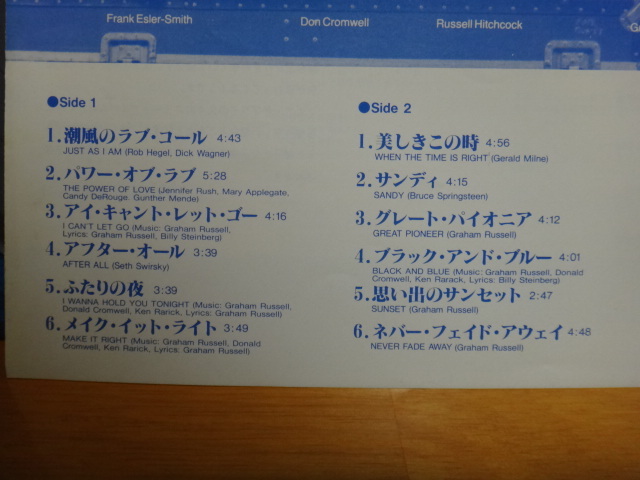 Frank Esler-Smith
Don Cromwell
Russell Hitchcock
●Side 1
1.潮風のラブ・コール 4:43
JUST AS I AM (Rob Hegel, Dick Wagner)
2.パワー・オブ・ラブ 5:28
THE POWER OF LOVE (Jennifer Rush, Mary Applegate,
Candy DeRouge. Gunther Mende)
3.アイ・キャント・レット・ゴー 4:16
I CAN'T LET GO (Music: Graham Russell,
Lyrics: Graham Russell, Billy Steinberg)
4.アフター・オール 3:39
AFTER ALL (Seth Swirsky)
5.ふたりの夜 3:39
I WANNA HOLD YOU TONIGHT (Music: Graham Russell,
Donald Cromwell, Ken Rarick, Lyrics: Graham Russell)
6.メイク・イット・ライト 3:49
MAKE IT RIGHT (Music: Graham Russell, Donald
Cromwell, Ken Rarick, Lyrics: Graham Russell)
●Side 2
1.美しきこの時 4:56
WHEN THE TIME IS RIGHT (Gerald Milne)
2.サンディ 4:15
SANDY (Bruce Springsteen)
3.グレート・パイオニア 4:12
GREAT PIONEER (Graham Russell)
4.ブラック・アンド・ブルー 4:01
BLACK AND BLUE (Music: Graham Russell, Donald
Cromwell, Ken Rarick, Lyrics: Billy Steinberg)
5.思い出のサンセット 2:47
SUNSET (Graham Russell)
6.ネバー・フェイド・アウェイ 4:48
NEVER FADE AWAY (Graham Russell)